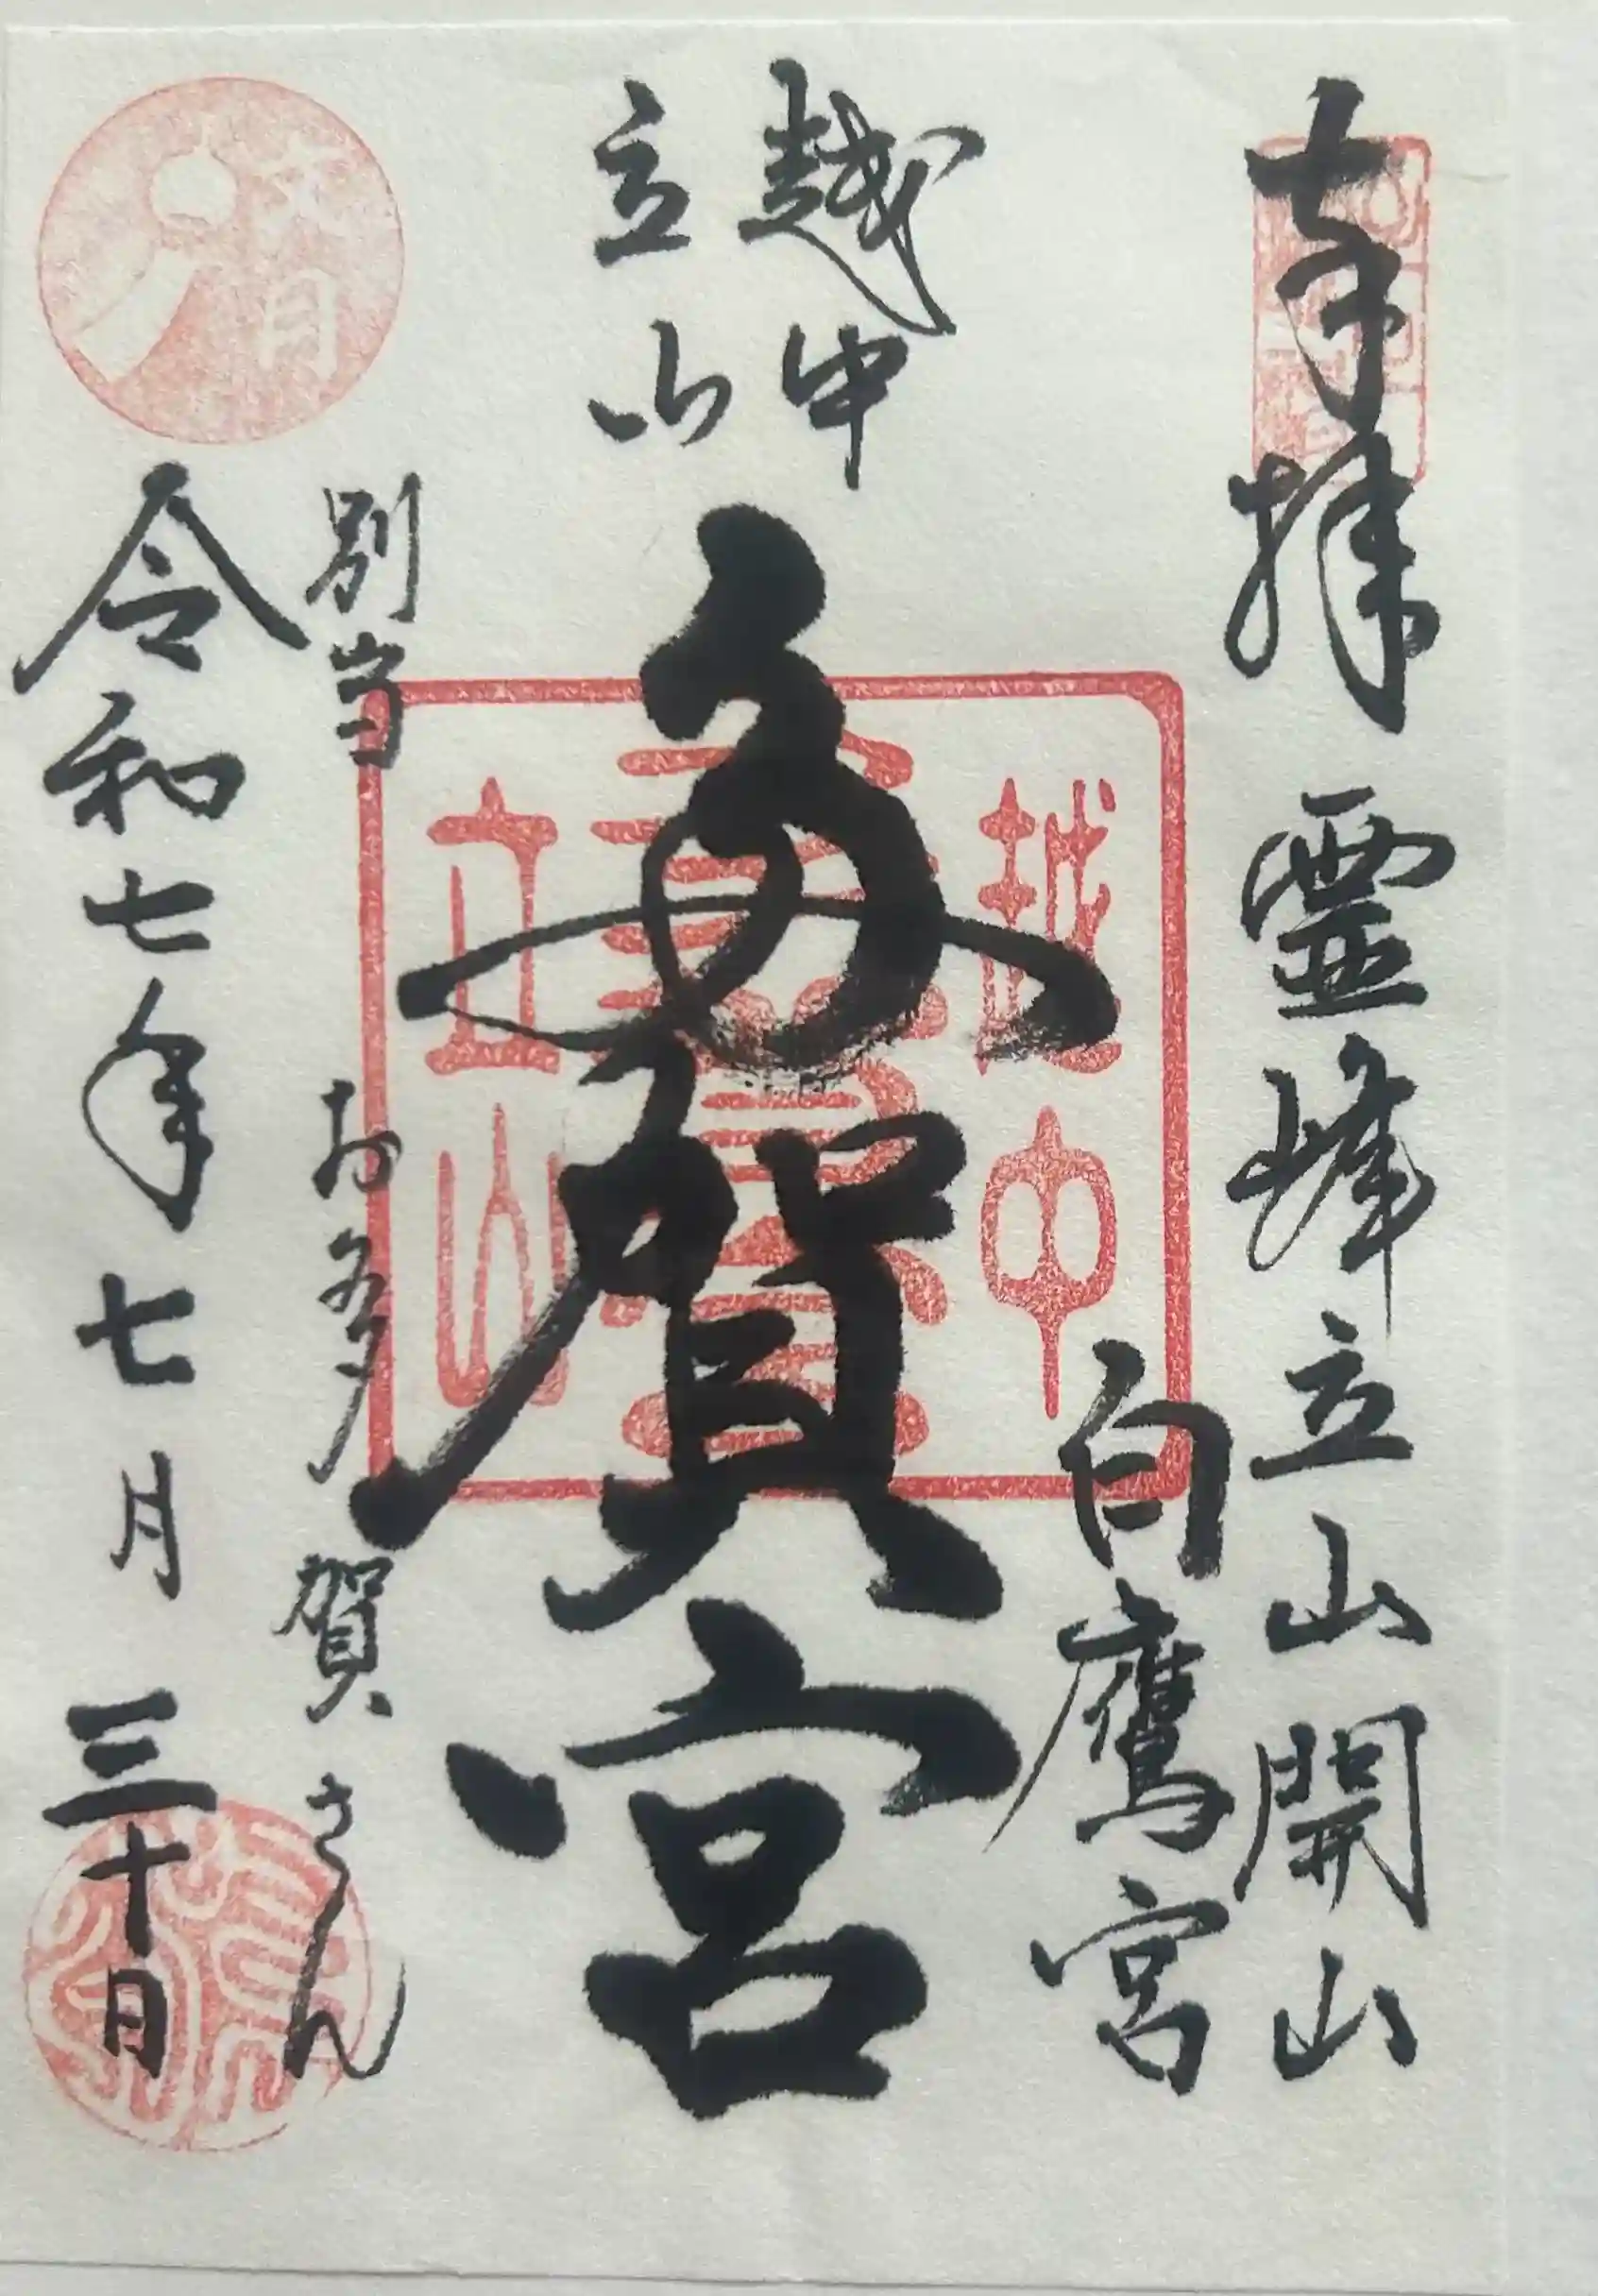 奉拝
霊峰立山開山
白鷹宮
越中
立山
多賀宮
別当 お多賀さん
令和七年七月三十日
文月
越中
立山